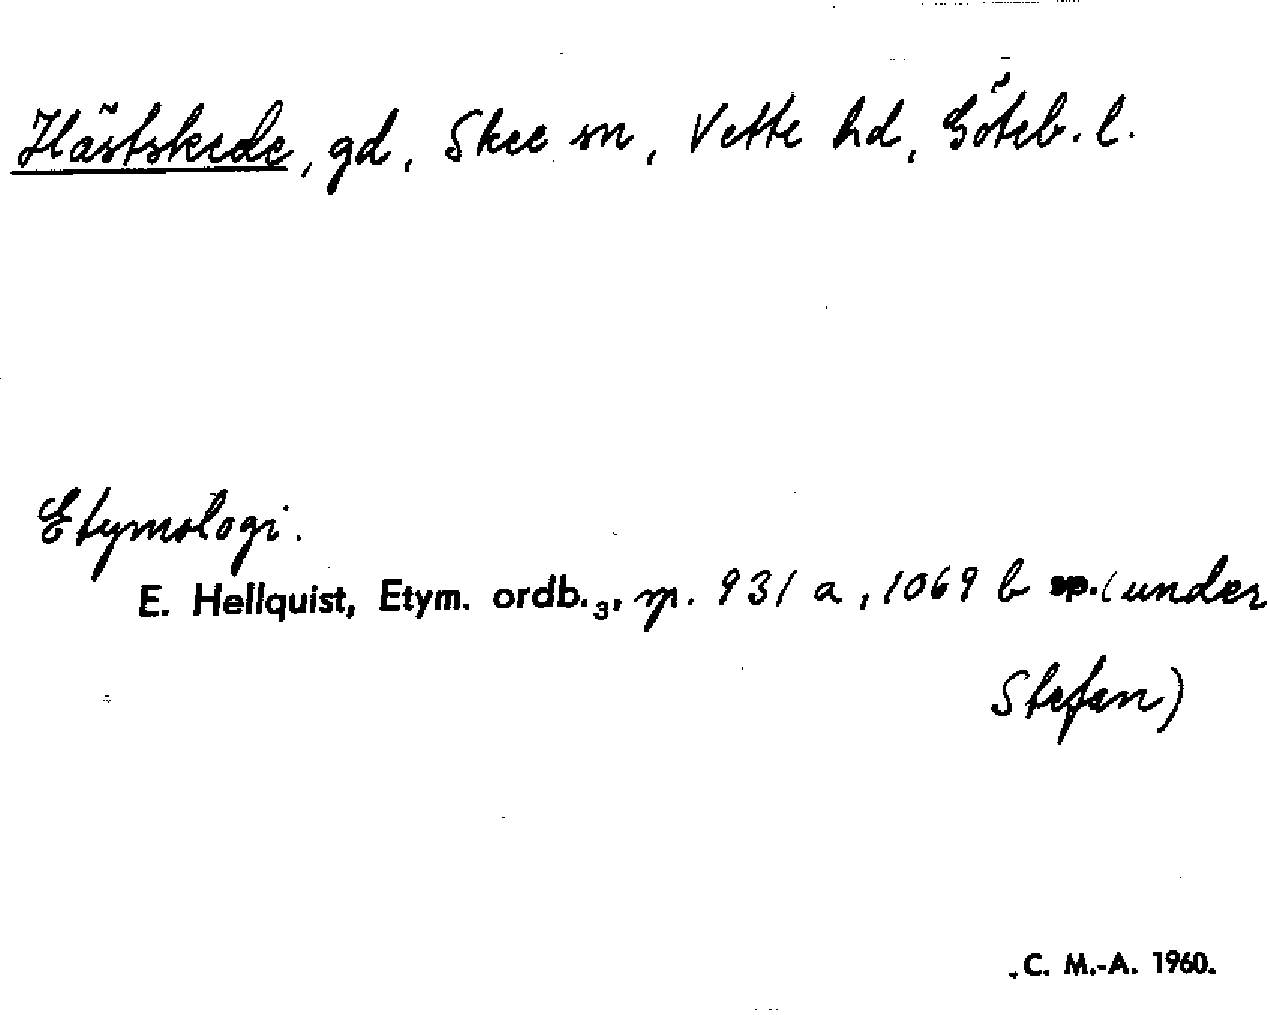 Hästskede, gd, Skee sn, Vette hd, Göteb. l.
Etymologi.
E. Hellquist, Etym. ordb.₃, sp. 931 a, 1069 b sp. (under
Stefan)
C. M.-A. 1960.